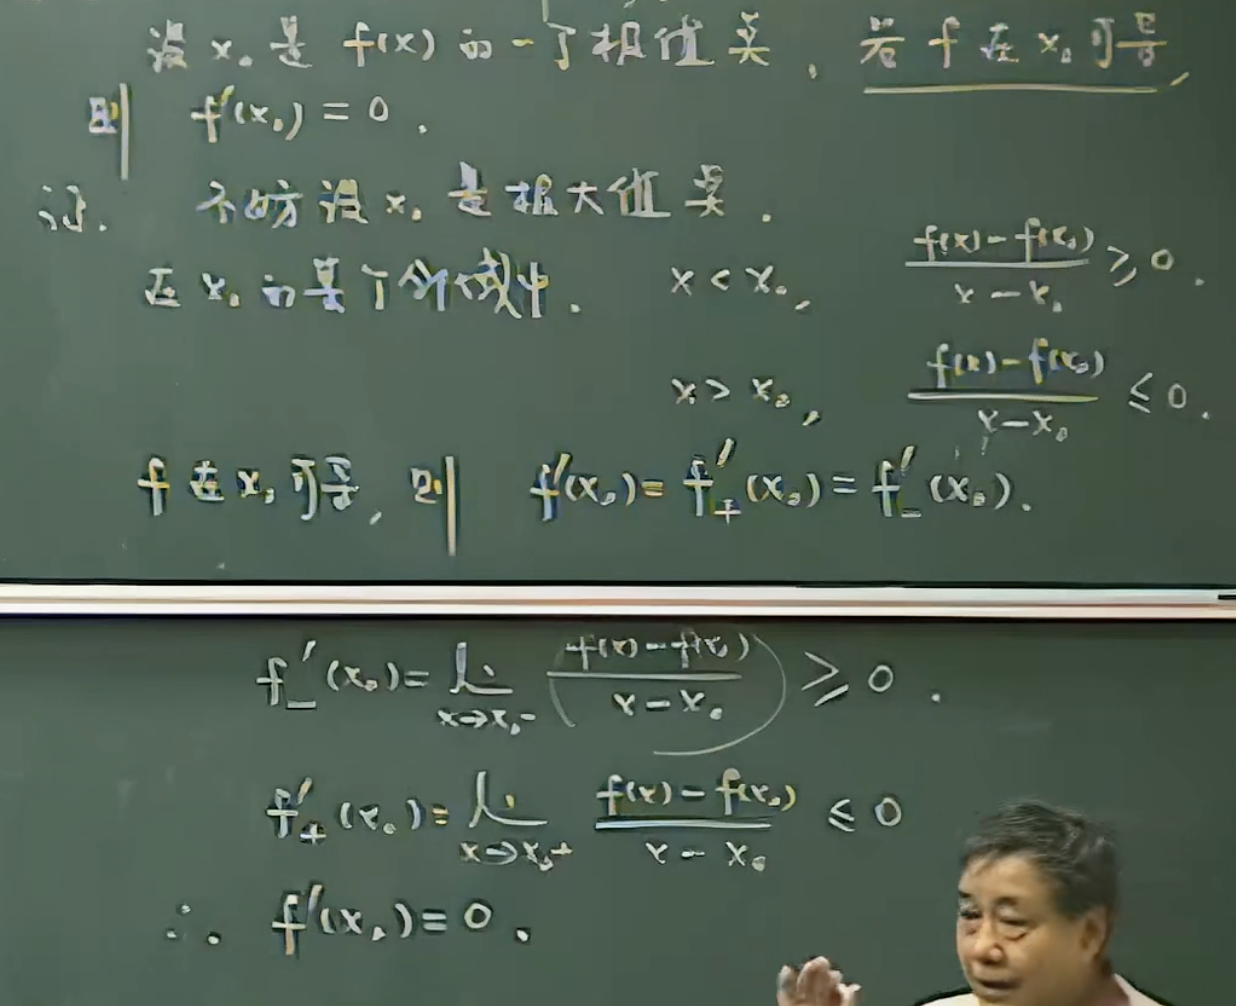 设 x₀ 是 f(x) 的一个极值点, 若 f 在 x₀ 可导,
则 f'(x₀) = 0.
证. 不妨设 x₀ 是极大值点.
在 x₀ 的某个邻域中. x < x₀, (f(x)-f(x₀))/(x-x₀) ≥ 0.
x > x₀, (f(x)-f(x₀))/(x-x₀) ≤ 0.
f 在 x₀ 可导, 则 f'(x₀) = f'₊(x₀) = f'₋(x₀).
f'₋(x₀) = lim_{x→x₀-} (f(x)-f(x₀))/(x-x₀) ≥ 0.
f'₊(x₀) = lim_{x→x₀+} (f(x)-f(x₀))/(x-x₀) ≤ 0
∴ f'(x₀) = 0.